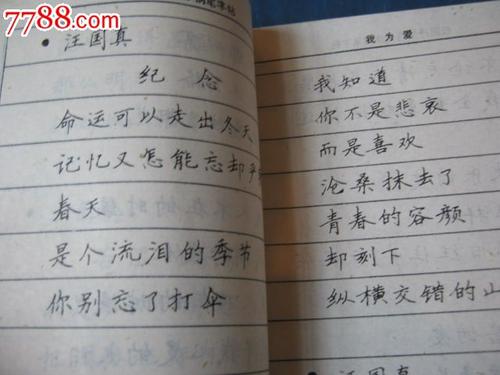 7788.com
钢笔字帖
• 汪国真
纪 念
命运可以走出冬天
记忆又怎能忘却
春天
是个流泪的季节
你别忘了打伞
我为爱
我知道
你不是悲哀
而是喜欢
沧桑抹去了
青春的容颜
却刻下
纵横交错的山
• 汪国真